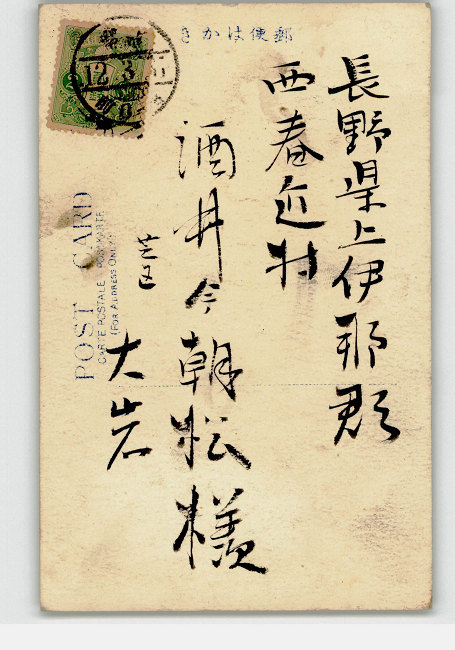 郵便はかき
長野県上伊那郡
西春近村
酒井今朝松様
芝区
大岩
POST CARD
CARTE POSTALE
(FOR ADDRESS ONLY)
12.3